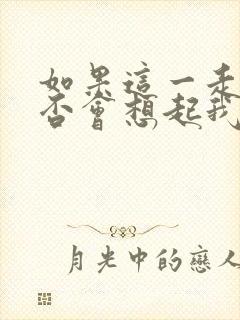 如果這一走
否會想起我
月光中的戀人